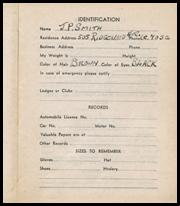 IDENTIFICATION
Name J.P. SMITH
Residence Address 505 RIDGELAND
Business Address Phone
My Weight is Height
Color of Hair BROWN Color of Eyes BLACK
In case of emergency please notify
Lodges or Clubs
RECORDS
Automobile License No.
Car No. Motor No.
Valuable Papers are at
Other Records
SIZES TO REMEMBER
Gloves Hat
Shoes Hosiery